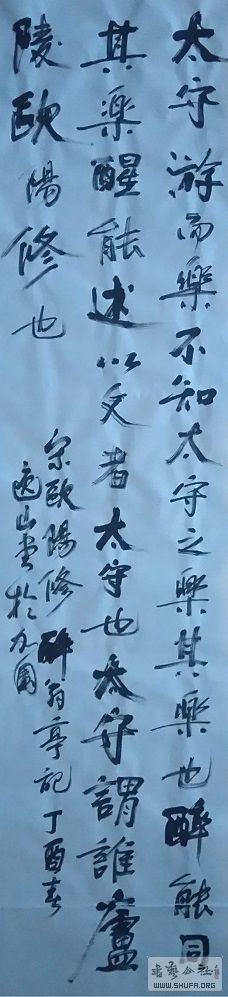 太守游而樂不知太守之樂其樂也醉能同
其樂醒能述以文者太守也太守謂誰廬
陵歐陽修也
宋歐陽修醉翁亭記丁酉春
山書於
書藝公社
WWW.SHUFA.ORG